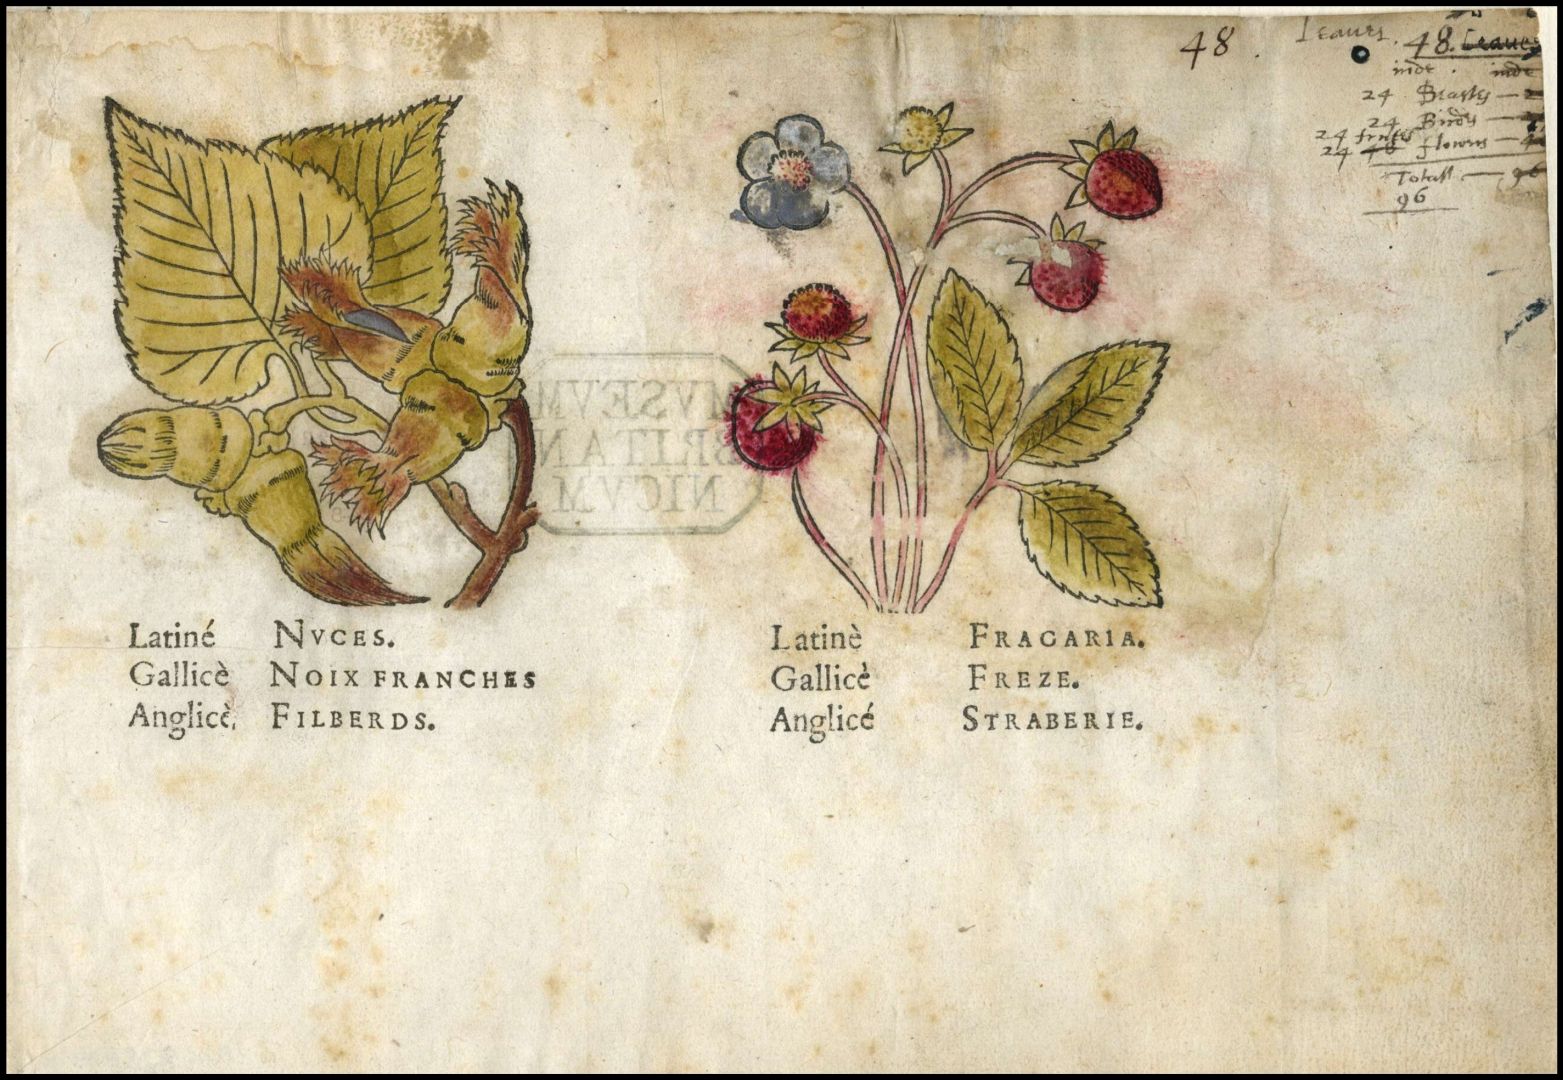 48.
Leaves.
48. Leaves
inde . inde
24 Beasts — 2
24 Birds —
24 frutes
24 48 flowrs — 4
Totall — 96
96
MVSEVM
BRITAN
NICVM
Latiné NVCES.
Gallicè NOIX FRANCHES
Anglicè, FILBERDS.
Latinè FRAGARIA.
Gallicè FREZE.
Anglicé STRABERIE.